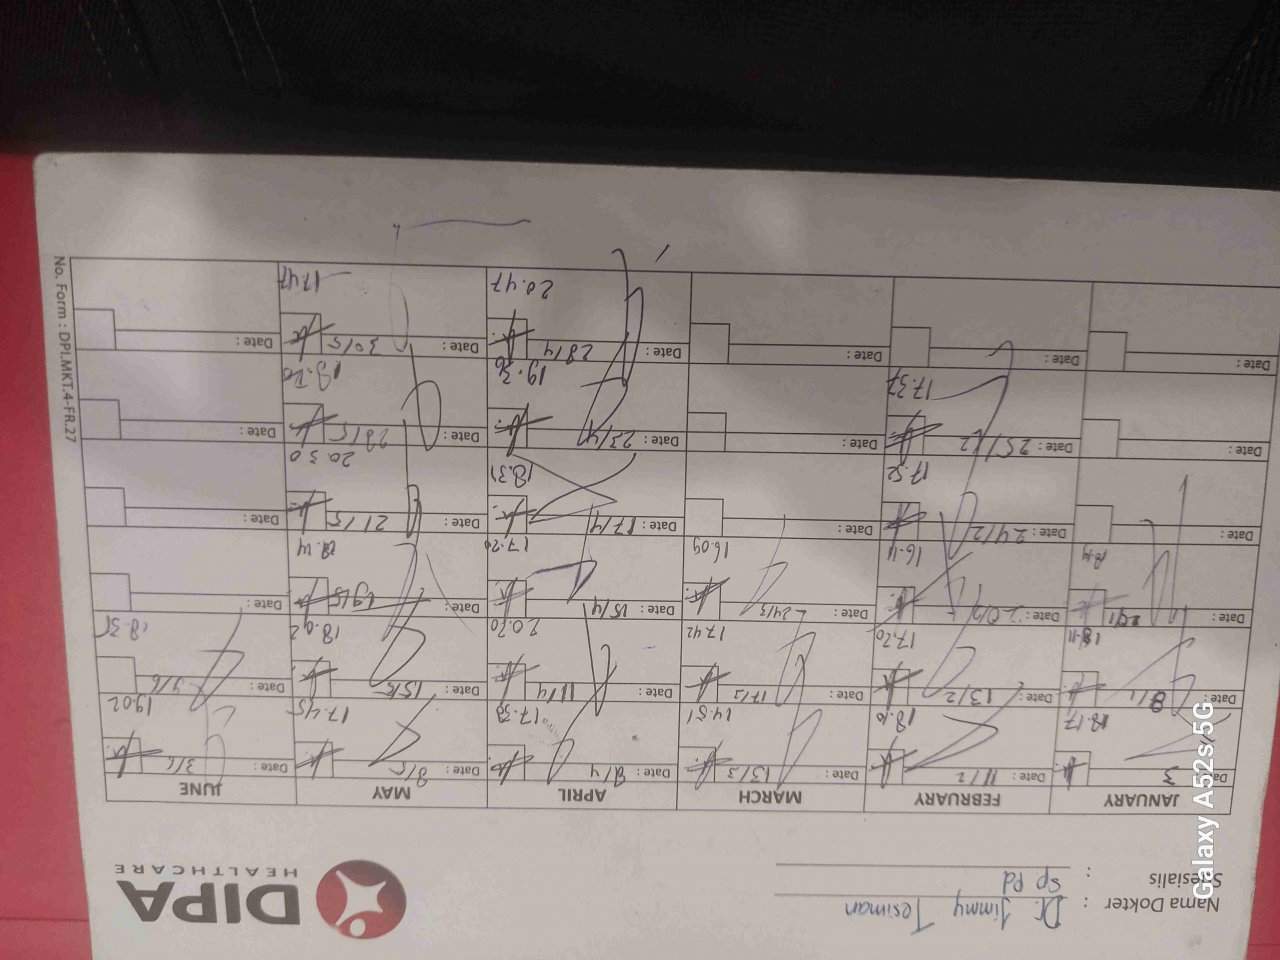 Nama Dokter : Dr. Jimmy Tesiman
Spesialis : Sp Pd
DIPA
HEALTHCARE
JANUARY FEBRUARY MARCH APRIL MAY JUNE
Date: 3 Date: 11/2 Date: 13/3 Date: 8/4 Date: 8/5 Date: 3/6
18.17 18.10 14.51 17.39 17.45 19.02
Date: 8/1 Date: 13/2 Date: 17/3 Date: 11/4 Date: 15/5 Date: 9/6
18.11 17.20 17.42 20.20 18.02 18.35
Date: Date: 20/2 Date: 24/3 Date: 15/4 Date: 19/5 Date:
18.14 16.11 16.09 17.20 18.14
Date: Date: 24/2 Date: Date: 17/4 Date: 21/5 Date:
17.52 18.31 20.30
Date: Date: 25/2 Date: Date: 23/4 Date: 28/5 Date:
17.37 19.36
Date: Date: Date: Date: 28/4 Date: 30/5 Date:
20.47 17.47
No. Form : DPI.MKT.4-FR.27
Galaxy A52s 5G